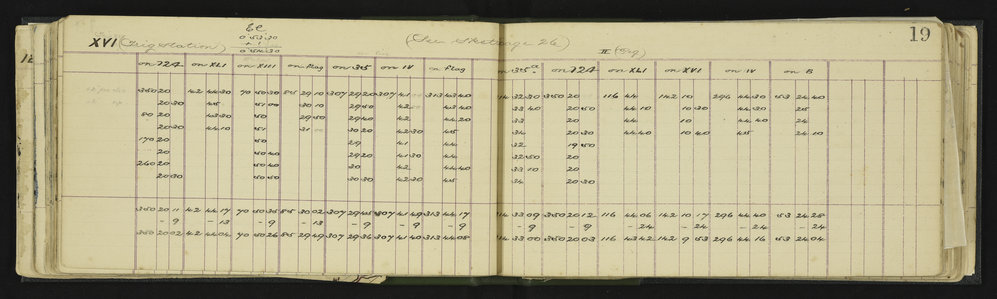 EC
XVI (Trig Station) 0 53 30 (See Sketch page 26) II (Trig) 19
+ 1
0 54 30
on 724 on XLI on XIII on Flag on 385 on IV on Flag on 385a on 724 on XLI on XVI on IV on B
350 20 42 44 30 70 50 30 85 29 10 307 29 20 307 41 313 43 40 114 32 30 350 20 116 44 142 10 296 44 30 53 24 40
20 30 45 51 00 30 10 29 50 42 43 40 33 40 20 50 44 10 10 30 45 30 25
80 20 43 30 50 29 50 29 40 42 44 20 33 20 44 10 44 40 24
20 30 44 10 51 31 30 20 42 30 45 34 20 30 44 40 10 40 45 24 10
170 20 50 29 41 44 32 19 50
20 50 40 29 20 41 30 44 32 50 20
260 20 50 40 30 42 44 40 33 10 20
20 30 50 50 30 30 42 30 45 34 20 30
350 20 11 42 44 17 70 50 35 85 30 02 307 29 45 307 41 49 313 44 17 114 33 09 350 20 12 116 44 06 142 10 17 296 44 40 53 24 28
- 9 - 13 - 9 - 13 - 9 - 9 - 9 - 9 - 9 - 24 - 24 - 24 - 24
350 20 02 42 44 04 70 50 26 85 29 49 307 29 36 307 41 40 313 44 08 114 33 00 350 20 03 116 43 42 142 9 53 296 44 16 53 24 04